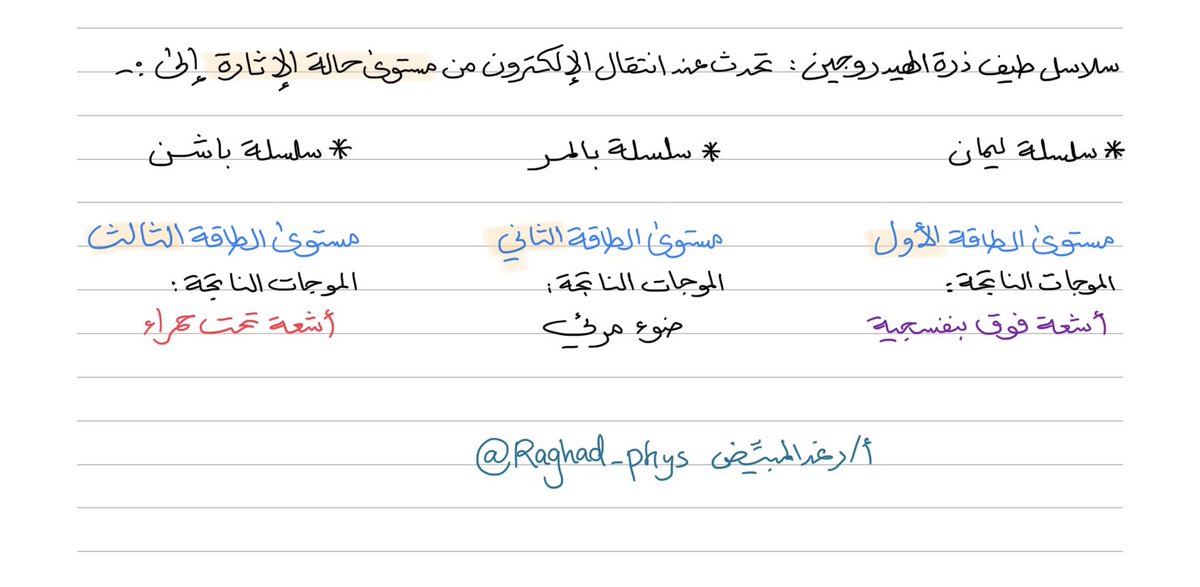 سلاسل طيف ذرة الهيدروجين : تحدث عند انتقال الإلكترون من مستوى حالة الإثارة إلى :-
* سلسلة ليمان * سلسلة بالمر * سلسلة باشن
مستوى الطاقة الأول مستوى الطاقة الثاني مستوى الطاقة الثالث
الموجات الناتجة : الموجات الناتجة : الموجات الناتجة :
أشعة فوق بنفسجية ضوء مرئي أشعة تحت حمراء
أ/رغد المبيّض @Raghad_phys